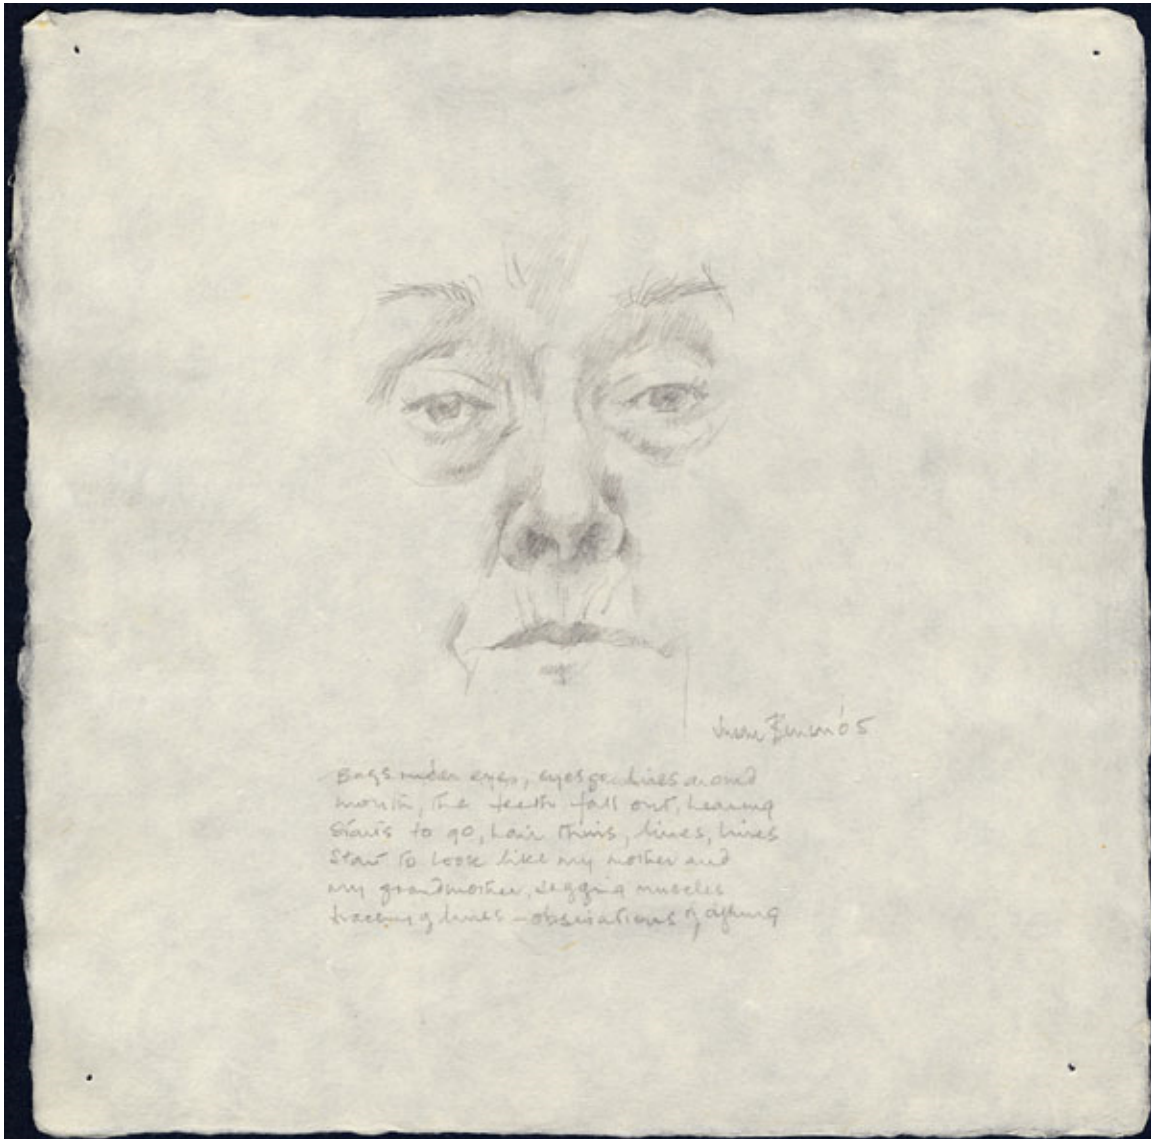 Bags under eyes, eyes go lines around
mouth, the teeth fall out, hearing
starts to go, hair thins, lines, lines
start to look like my mother and
my grandmother, sagging muscles
tracing of lines – observations of